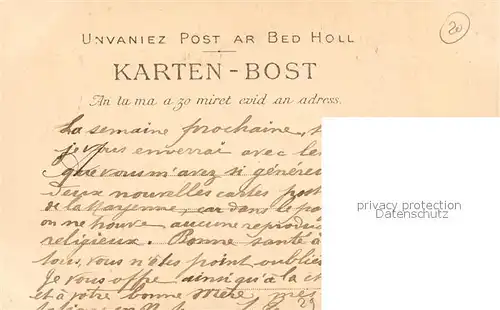 UNVANIEZ POST AR BED HOLL
20
KARTEN-BOST
An tu ma a zo miret evid an adress.
La semaine prochaine,
je vous enverrai avec les
que vous m'avez si génére
deux nouvelles cartes post
de la Mayenne, car dans le
on ne trouve aucune reprodu
religieux. Bonne santé à
tous, vous n'êtes point oublié
Je vous offre ainsi qu'à la
et à votre bonne Mère, mes
29
privacy protection
Datenschutz